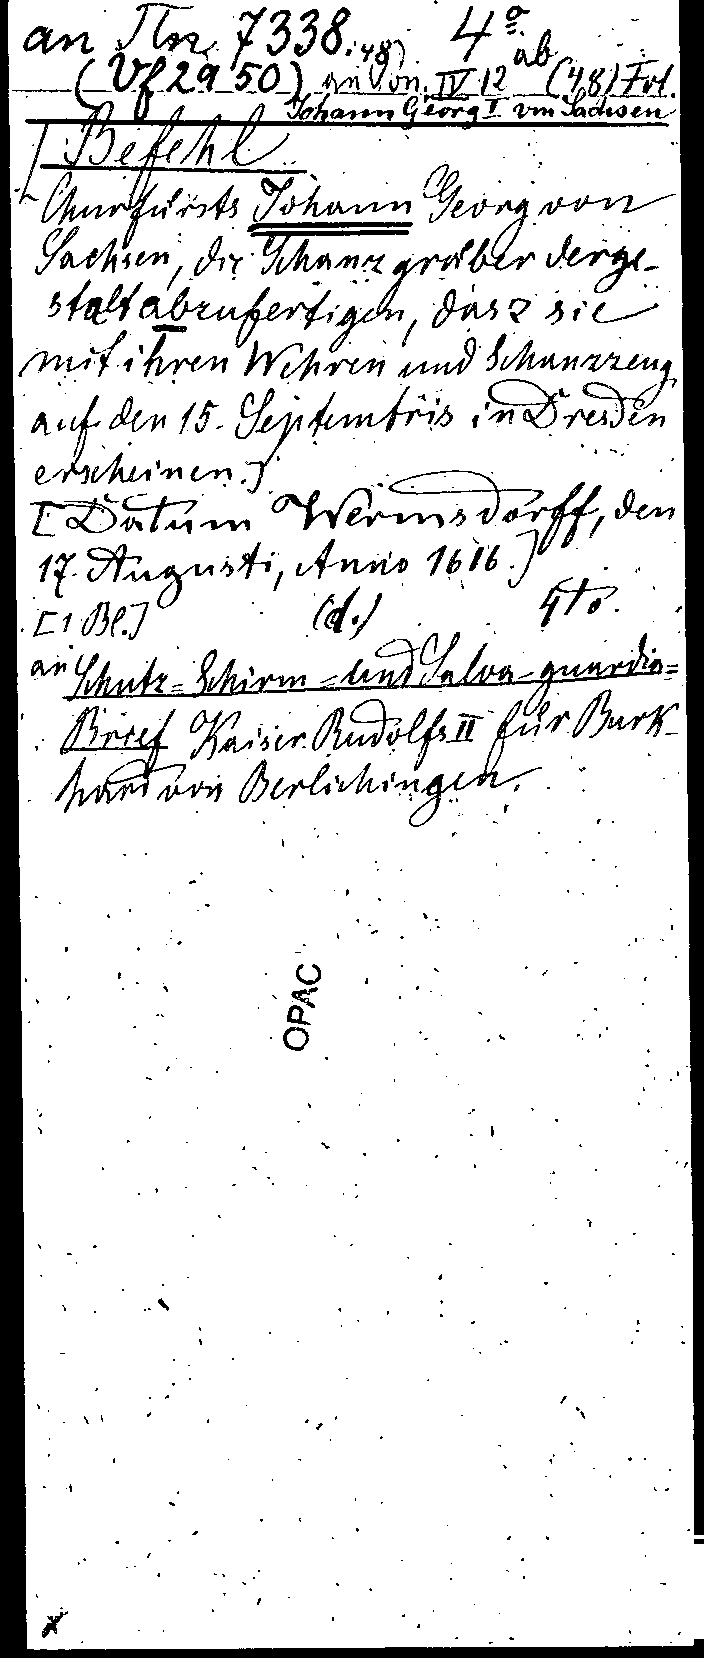 an 7338. (48) 4º.
(Vf 2950) an Von. IV 12 ab (48) Fol.
Johann Georg I von Sachsen
[Befehl
Churfürsts Johann Georg von
Sachsen, die Schanzgräber derge-
stalt abzufertigen, dasz sie
mit ihren Wehren und Schanzzeug
auf den 15. Septembris in Dresden
erscheinen.]
[Datum Wermsdorff, den
17. Augusti, Anno 1616.]
[1 Bl.] (d.) 4to.
an Schutz-Schirm- und Salva-guardia-
Brief Kaiser Rudolfs II für Burk-
hard von Berlichingen.
OPAC